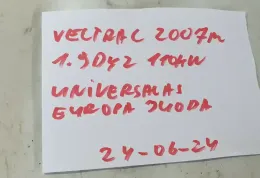 VECTRAC 2007m
1.9DYZ 110KW
UNIVERSALAS
EUROPA JUODA
24-06-24